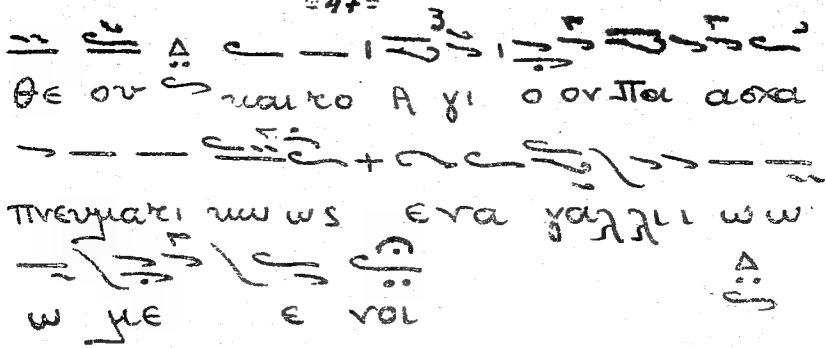 θε ου και το Α γι ο ον Πα ασχα
πνευματι κω ως ενα γαλλιι ω ω
ω με ε νοι